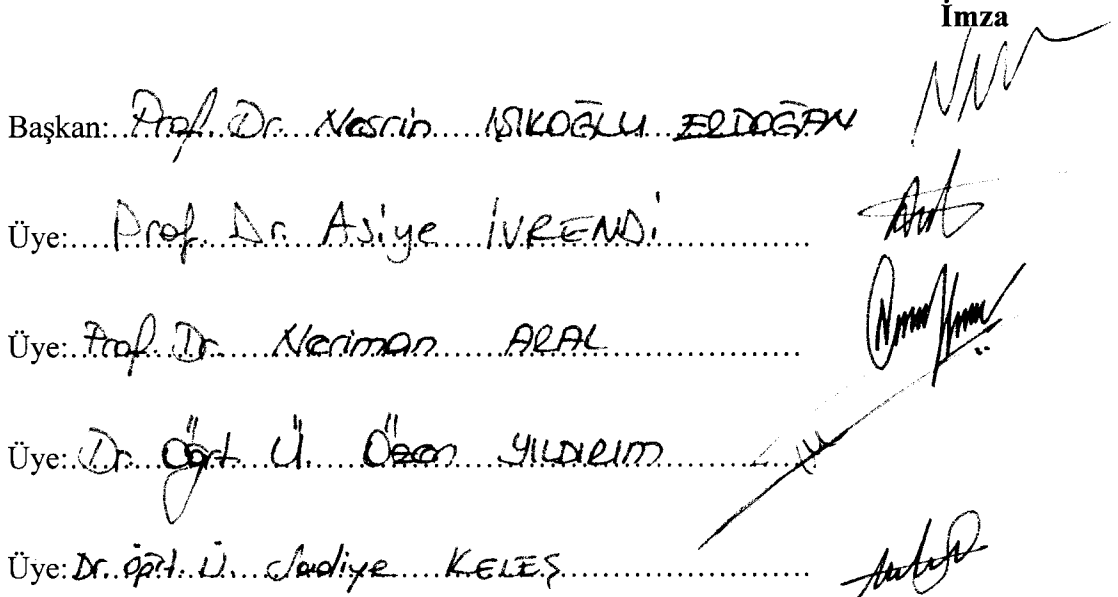 İmza
Başkan:..Prof. Dr. Nesrin IŞIKOĞLU ERDOĞAN
Üye:....Prof. Dr. Asiye İVRENDİ
Üye:.Prof. Dr. Neriman ARAL
Üye:.Dr. Öğrt Ü. Özcan YILDIRIM
Üye:.Dr. Öğrt. Ü. Sadiye KELEŞ